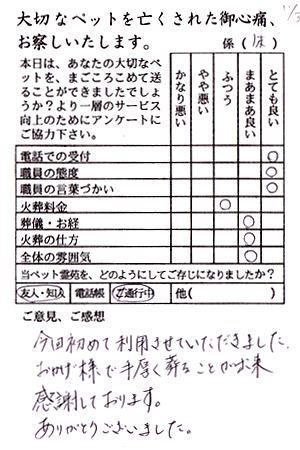 大切なペットを亡くされた御心痛、
お察しいたします。 係( )
本日は、あなたの大切なペットを、まごころこめて送ることができましたでしょうか?より一層のサービス向上のためにアンケートにご協力下さい。
かなり悪い
やや悪い
ふつう
まあまあ良い
とても良い
電話での受付 ○
職員の態度 ○
職員の言葉づかい ○
火葬料金 ○
葬儀・お経 ○
火葬の仕方 ○
全体の雰囲気 ○
当ペット霊苑を、どのようにしてご存じになりましたか?
友人・知人 電話帳 ご通行中 他( )
ご意見、ご感想
今回初めて利用させていただきました。
おかげ様で手厚く葬ることが出来
感謝しております。
ありがとうございました。